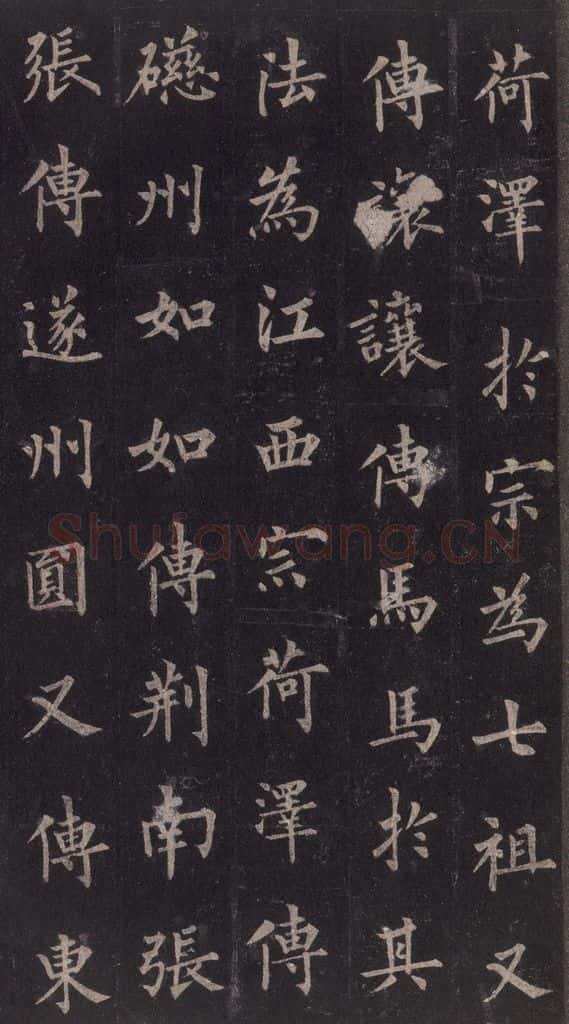 荷澤於宗為七祖又
傳讓讓傳馬馬於其
法為江西宗荷澤傳
礠州如如傳荆南張
張傳遂州圓又傳東
Shufawang.CN